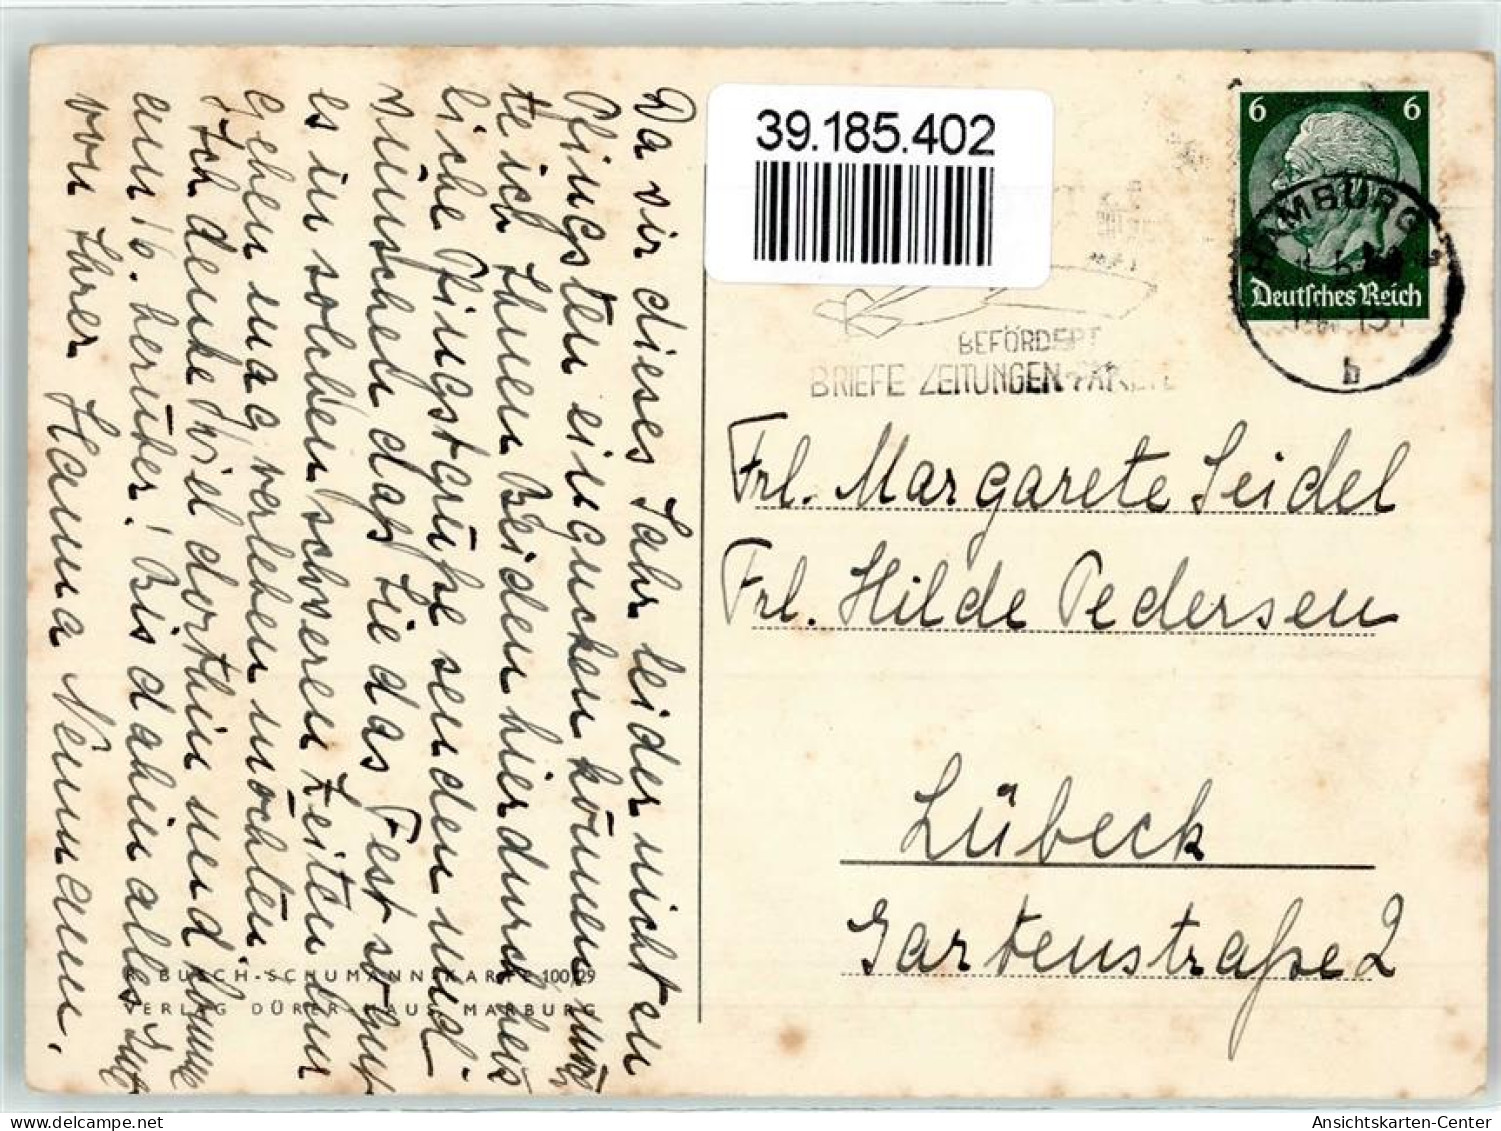 39.185.402
6 6
Deutsches Reich
HAMBURG
b
BEFÖRDERT
BRIEFE ZEITUNGEN PAKETE
Frl. Margarete Seidel
Frl. Hilde Pedersen
Lübeck
Gartenstraße 2
Da wir dieses Jahr leider nicht an
Pfingsten eingucken können möch
te ich Ihnen Beiden hierdurch herz
liche Pfingstgrüße senden und
wünschen daß Sie das Fest so gut
es in solchen schweren Zeiten nur
gehen mag verleben möchten.
Ich denke viel dorthin und komme
am 16. herüber! Bis dahin alles Gute
von Ihrer Hanna Neumann.
R. BUSCH-SCHUMANN-KARTE 100/29
VERLAG DÜRER-HAUS MARBURG
delcampe.net
the_postcard
Ansichtskarten-Center